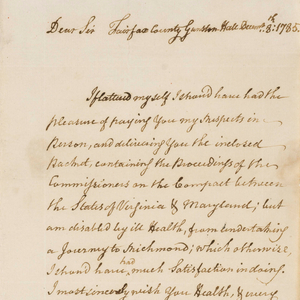 Dear Sir Fairfax County Gunston-Hall Decemr. 8th: 1785.
I flattered myself I should have had the
pleasure of paying You my Respects in
Person, and delivering You the inclosed
Packet, containing the Proceedings of the
Commissioners on the Compact between
the States of Virginia & Maryland; but
am disabled by ill Health, from undertaking
a Journey to Richmond; which otherwise,
I should have had much Satisfaction in doing.
I most sincerely wish You Health, & every